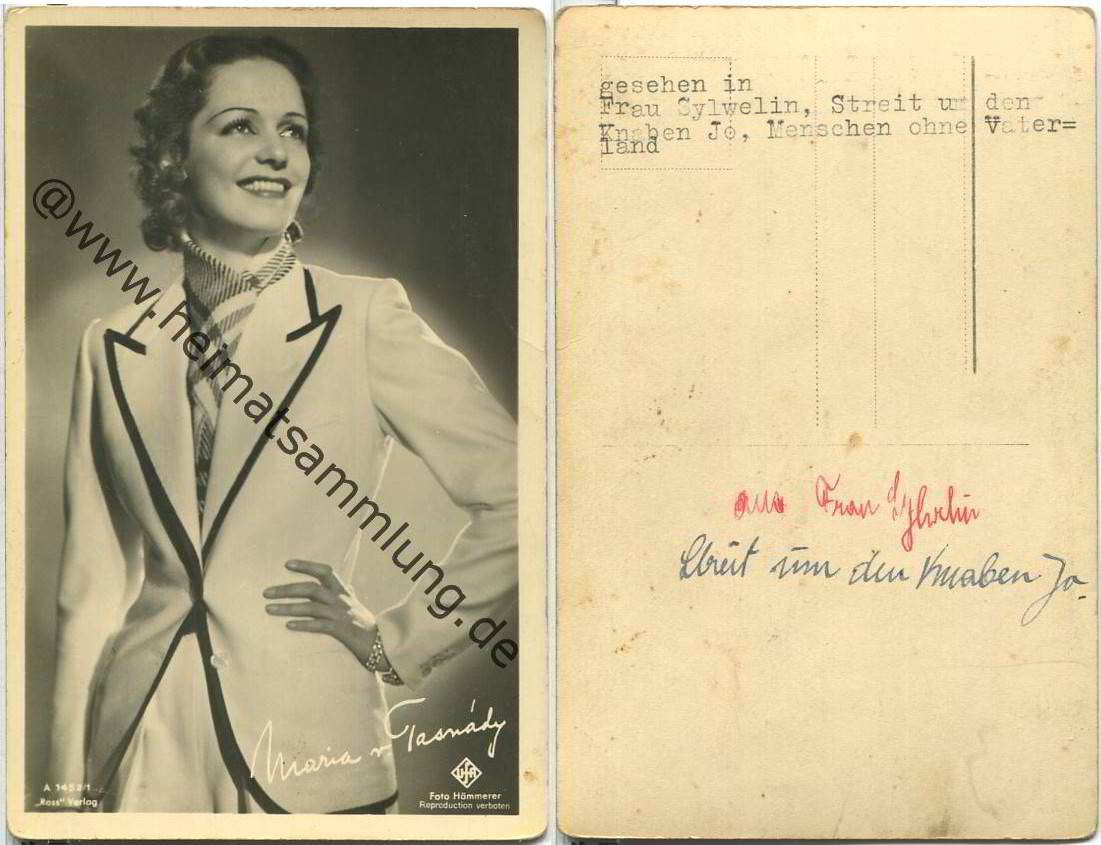 @www.heimatsammlung.de
Maria v Tasnády
A 1452/1
„Ross" Verlag
Ufa
Foto Hämmerer
Reproduction verboten
gesehen in
Frau Sylwelin, Streit um den
Knaben Jo, Menschen ohne Vater=
land
aus Frau Sylvelin
Streit um den Knaben Jo.